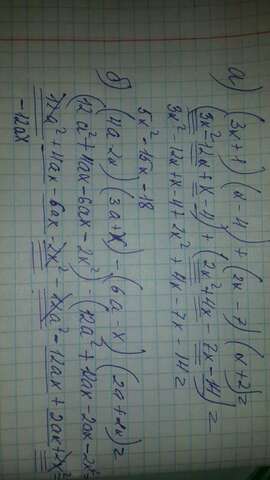 а) (3x+1)(x-4)+(2x-7)(x+2)=
(3x²-12x+x-4)+(2x²+4x-7x-14)=
3x²-12x+x-4+2x²+4x-7x-14=
5x²-15x-18
б) (4a-2x)(3a+x)-(6a-x)(2a+2x)=
(12a²+4ax-6ax-2x²)-(12a²+12ax-2ax-2x²=
12a²+4ax-6ax-2x²-12a²-12ax+2ax+2x²=
-12ax